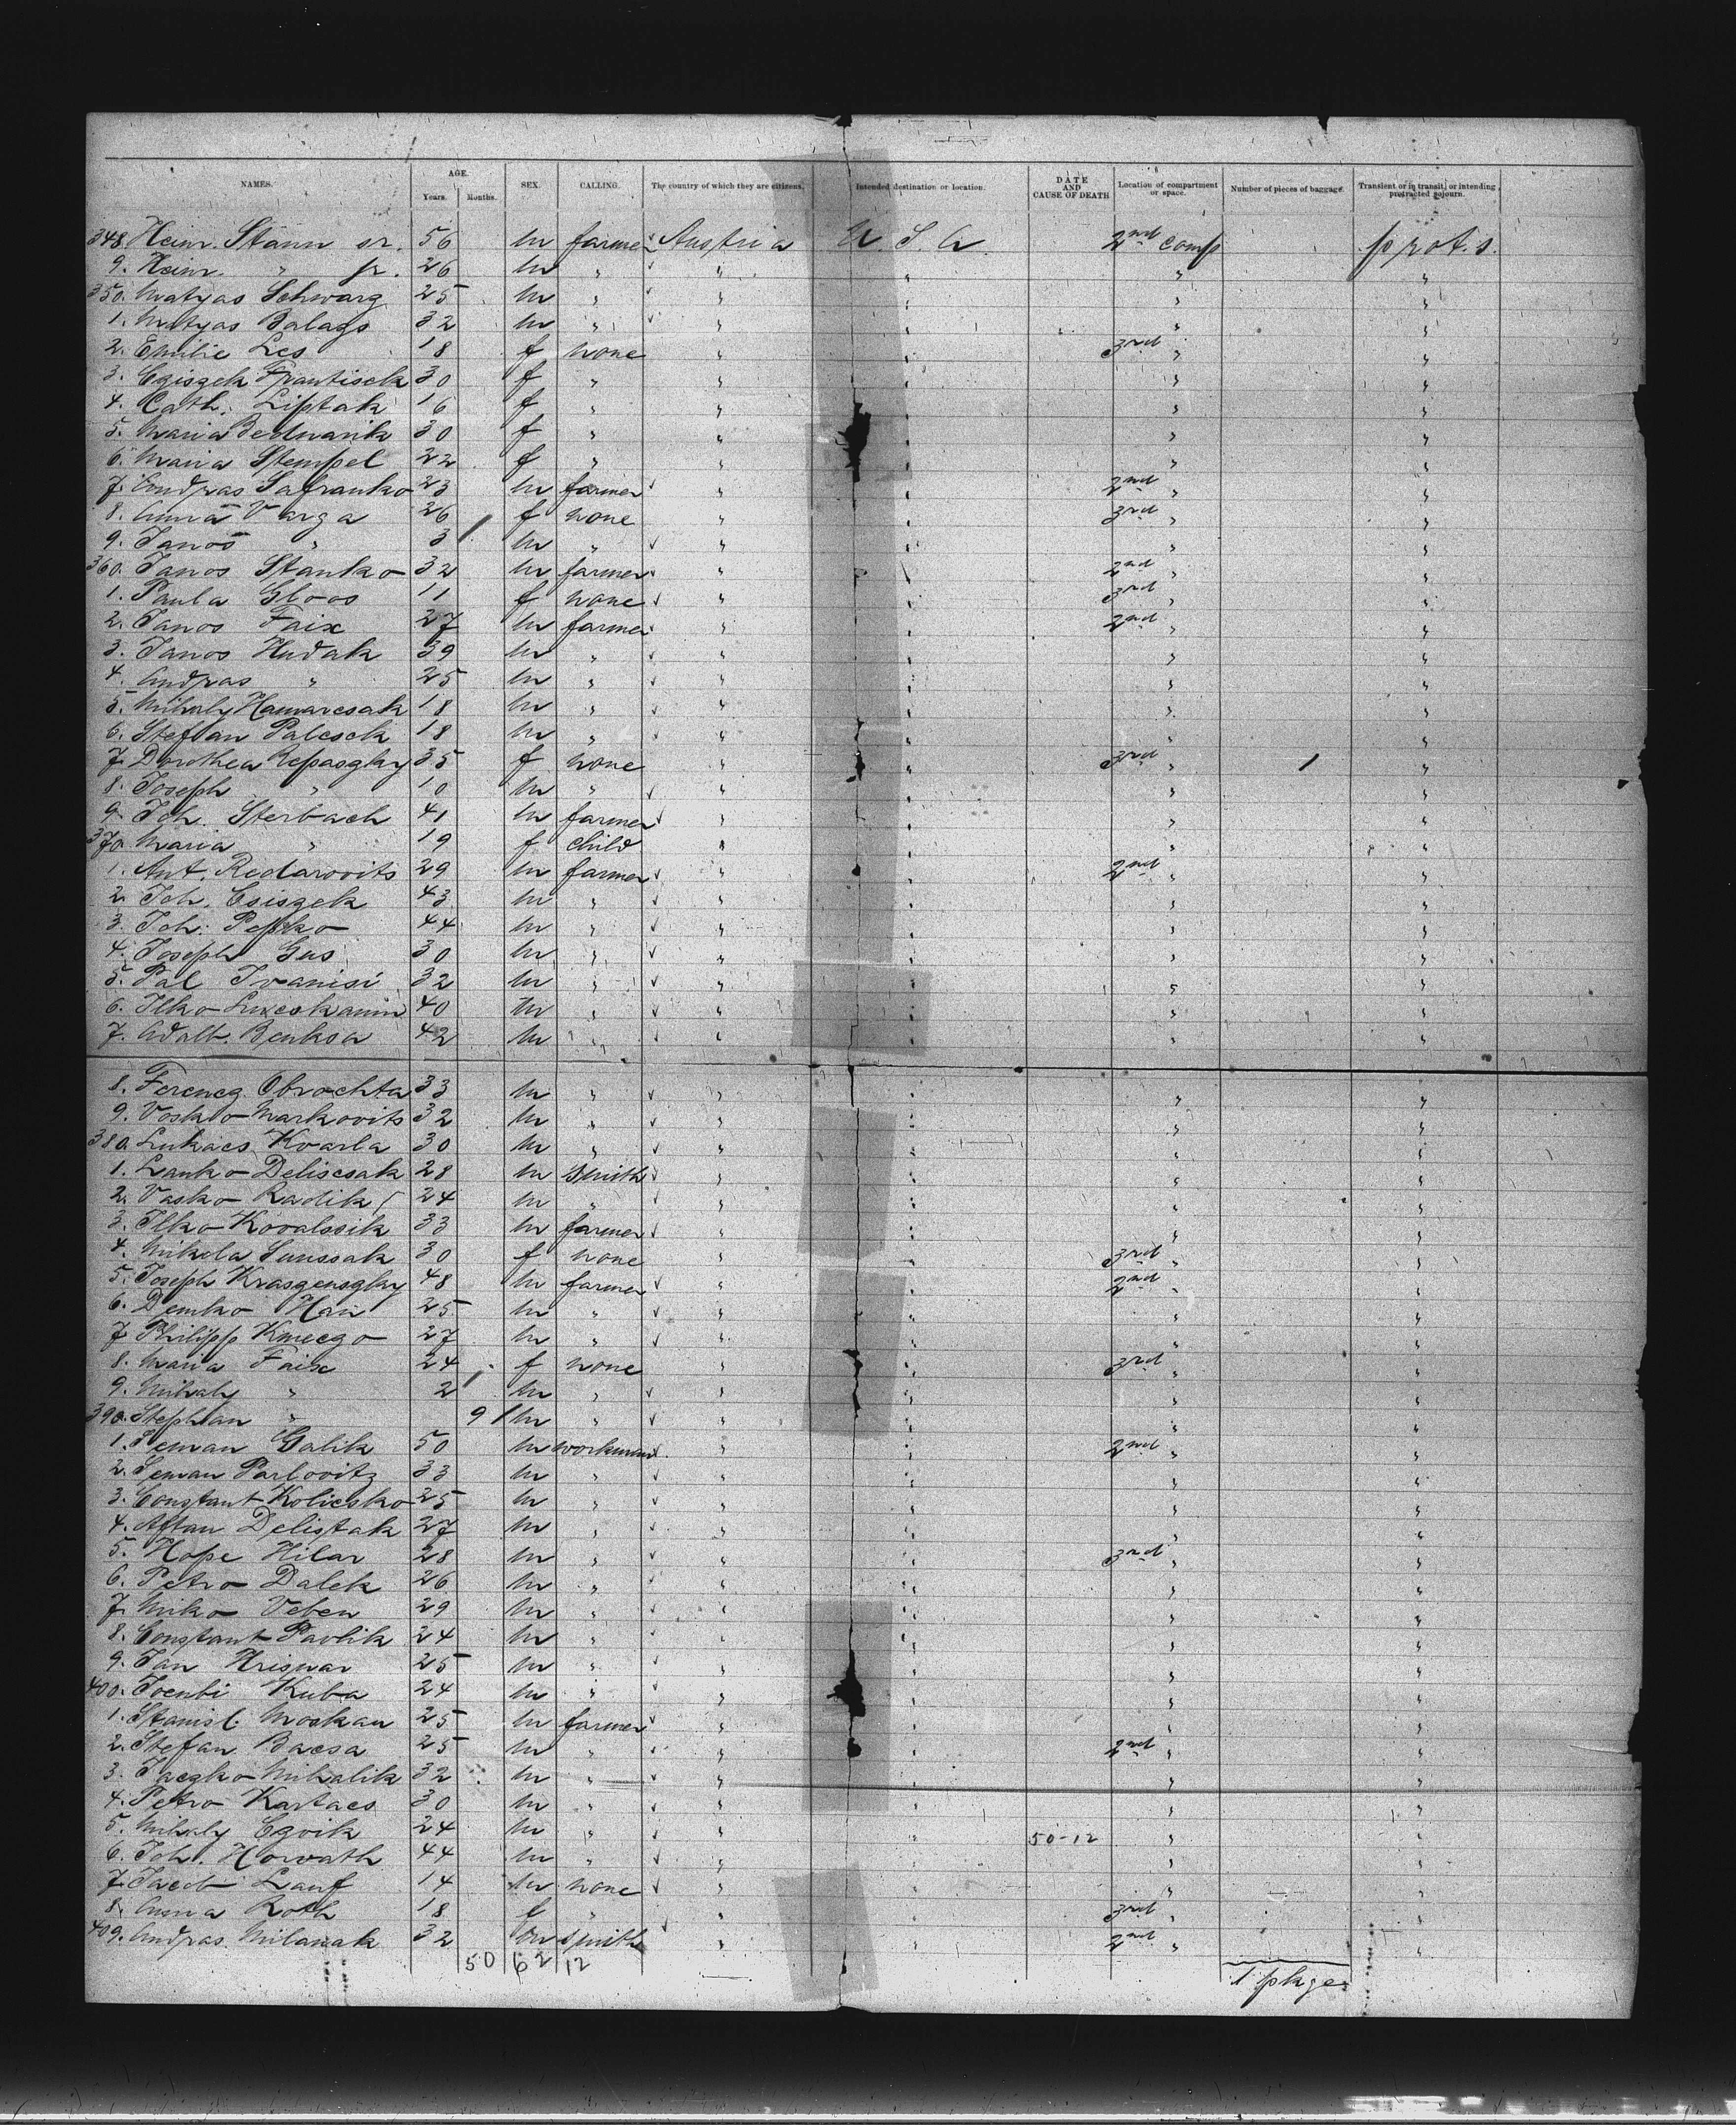 NAMES. AGE. Years. Months. SEX. CALLING. The country of which they are citizens. Intended destination or location. DATE AND CAUSE OF DEATH Location of compartment or space. Number of pieces of baggage. Transient or in transit, or intending protracted sojourn.
348. Heinr. Stann sr. 56 m farmer Austria U. S. A. 2nd comp prot. s.
9. Heinr. " jr. 26 m " " " " "
350. Matyas Schwarz 25 m " " " " "
1. Matyas Balazs 32 m " " " " "
2. Emilie Les 18 f none " " 3rd " "
3. Cziszek Frantisek 30 f " " " " "
4. Cath. Liptak 16 f " " " " "
5. Maria Bednarik 30 f " " " " "
6. Maria Stempel 22 f " " " " "
7. Andras Safranko 23 m farmer " " 2nd " "
8. Anna Varga 26 f none " " 3rd " "
9. Janos " 3 m " " " " "
360. Janos Stanko 32 m farmer " " 2nd " "
1. Paula Gloos 11 f none " " 3rd " "
2. Janos Faix 27 m farmer " " 2nd " "
3. Janos Hudak 39 m " " " " "
4. Andras " 25 m " " " " "
5. Mihaly Hamarcsak 18 m " " " " "
6. Steffan Palcsek 18 m " " " " "
7. Dorothea Repaszky 35 f none " " 3rd " 1 "
8. Joseph " 10 m " " " " "
9. Joh. Sterbach 41 m farmer " " " "
370. Maria " 19 f child " " " "
1. Ant. Redarovits 29 m farmer " " 2nd " "
2. Joh. Csiszek 43 m " " " " "
3. Joh. Popko 44 m " " " " "
4. Joseph Gus 30 m " " " " "
5. Pal Ivanisi 32 m " " " " "
6. Ilko 40 m " " " " "
7. Adalb. Benksa 42 m " " " " "
8. Ferencz Obrochta 33 m " " " " "
9. Vosko Markovits 32 m " " " " "
380. Lukacs Kvarla 30 m " " " " "
1. Lanko Deliscsak 28 m Smith " " " "
2. Vasko Radik 24 m " " " " "
3. Ilko Kovalssik 33 m farmer " " " "
4. Mikola Sunssak 30 f none " " 3rd " "
5. Joseph Kraszenszky 48 m farmer " " 2nd " "
6. Demko Han 25 m " " " " "
7. Philipp Kmeczo 27 m " " " " "
8. Maria Faix 24 f none " " 3rd " "
9. Mihaly " 2 m " " " " "
390. Stephan " 9 m " " " " "
1. Seman Galik 50 m workman " " 2nd " "
2. Seman Parlovitz 33 m " " " " "
3. Constant Koliesko 25 m " " " " "
4. Aftan Delistak 27 m " " " " "
5. Hope Hilar 28 m " " " 3rd " "
6. Petro Dalek 26 m " " " " "
7. Miko Veben 29 m " " " " "
8. Constant Pavlik 24 m " " " " "
9. Jan Hrisnar 25 m " " " " "
400. Kuba 24 m " " " " "
1. Stanisl. Moskau 25 m farmer " " " "
2. Stefan Bacsa 25 m " " " 2nd " "
3. Jaczko Mihalik 32 m " " " " "
4. Petro Kartacs 30 m " " " " "
5. Mihaly Czvik 24 m " " " 50-12 " "
6. Joh. Horvath 44 m " " " " "
7. Jacob Lauf 14 m none " " " "
8. Anna Roth 18 f " " " 3rd " "
409. Andras Milanak 32 m smith " " 2nd " "
50 62 12 1 pkge